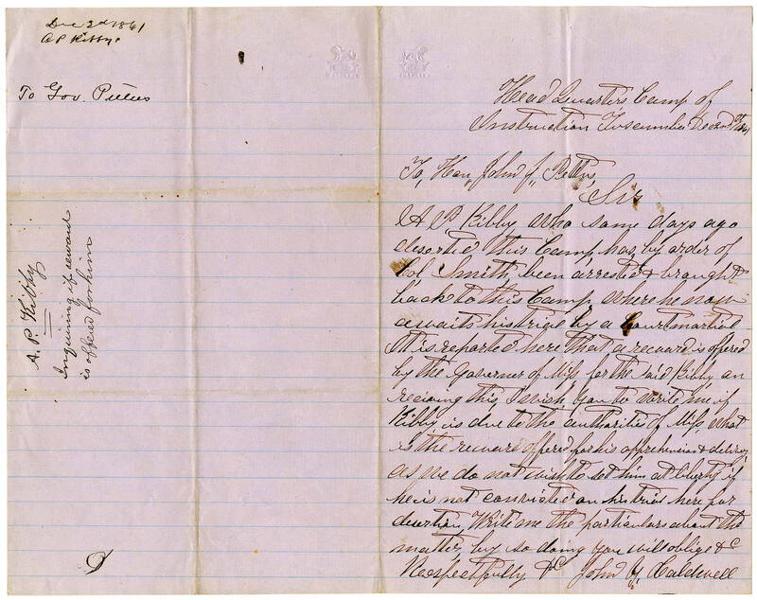 Dec 2d 1861
A P Kibby
To Gov. Pettus
A. P. Kibby
Inquiring if reward
is offered for him
Head Quarters Camp of
Instruction Tuscumbia Decem 2nd 1861
To, Hon, John J, Pettus,
Sir
A P, Kibby who some days ago
deserted this Camp has by order of
Col Smith been arrested & brought
back to this Camp where he now
awaits his trial by a Court martial
It is reported here that a reward is offered
by the Governor of Miss for the said Kibby on
reciving this I wish you to write me if
Kibby is due to the authorities of Miss, what
is the reward offered for his apprehension & delivry
as we do not wish to set him at liberty if
he is not convicted on his trial here for
desertion, Write me the particulars about the
matter, by so doing you will oblige &c
Respectfully &c John H, Caldwell